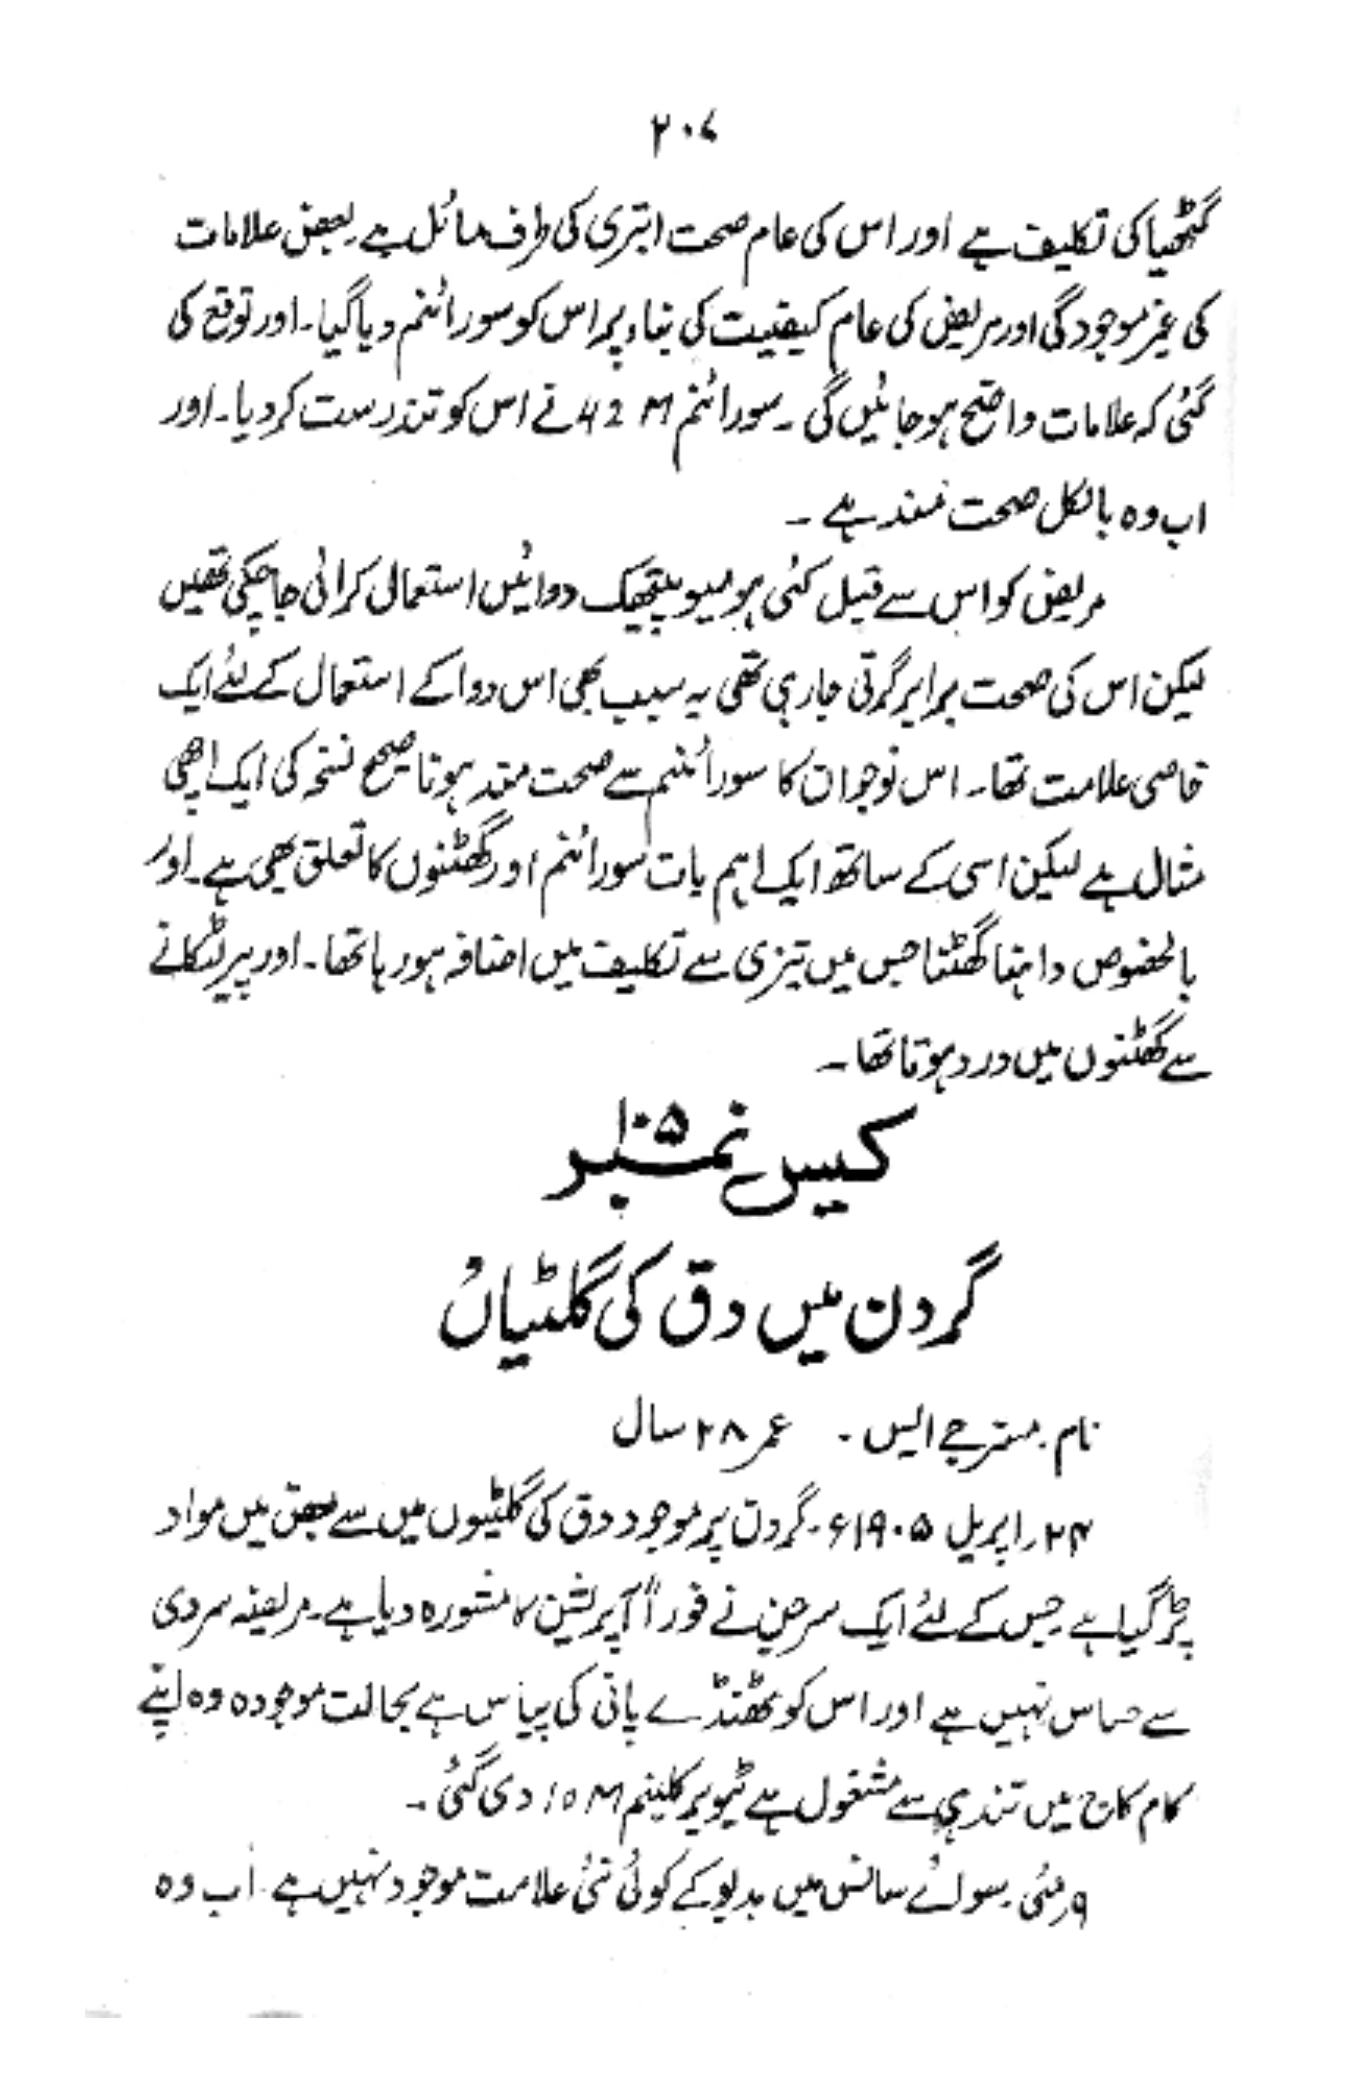 ۲۰۷
گٹھیا کی تکلیف ہے اور اس کی عام صحت ابتری کی طرف مائل ہے۔ بعض علامات
کی غیر موجودگی اور مریض کی عام کیفیت کی بناء پر اس کو سورائنم دیا گیا۔ اور توقع کی
گئی کہ علامات واضح ہو جائیں گی ۔ سورائنم 42 M نے اس کو تندرست کر دیا۔ اور
اب وہ بالکل صحت مند ہے ۔
مریض کو اس سے قبل کئی ہومیو پیتھیک دوائیں استعمال کرائی جا چکی تھیں
لیکن اس کی صحت برابر گرتی جا رہی تھی یہ سبب بھی اس دوا کے استعمال کے لئے ایک
خاصی علامت تھا۔ اس نوجوان کا سورائنم سے صحت مند ہونا صحیح نسخہ کی ایک اچھی
مثال ہے لیکن اسی کے ساتھ ایک اہم بات سورائنم اور گھٹنوں کا تعلق بھی ہے۔ اور
بالخصوص داہنا گھٹنا جس میں تیزی سے تکلیف میں اضافہ ہو رہا تھا۔ اور پیر لٹکانے
سے گھٹنوں میں درد ہوتا تھا ۔
کیس نمبر ۱۰۵
گردن میں دق کی گلٹیاں
نام۔ مسز جے ایس ۔ عمر ۲۸ سال
۲۴ر اپریل ۱۹۰۵ء۔ گردن پر موجود دق کی گلٹیوں میں سے بعض میں مواد
پڑ گیا ہے جس کے لئے ایک سرجن نے فوراً آپریشن کا مشورہ دیا ہے۔ مریضہ سردی
سے حساس نہیں ہے اور اس کو ٹھنڈے پانی کی پیاس ہے بحالت موجودہ وہ اپنے
کام کاج میں تندہی سے مشغول ہے ٹیوبرکلینم 10 M دی گئی ۔
۹ر مئی۔ سوائے سانس میں بدبو کے کوئی نئی علامت موجود نہیں ہے۔ اب وہ